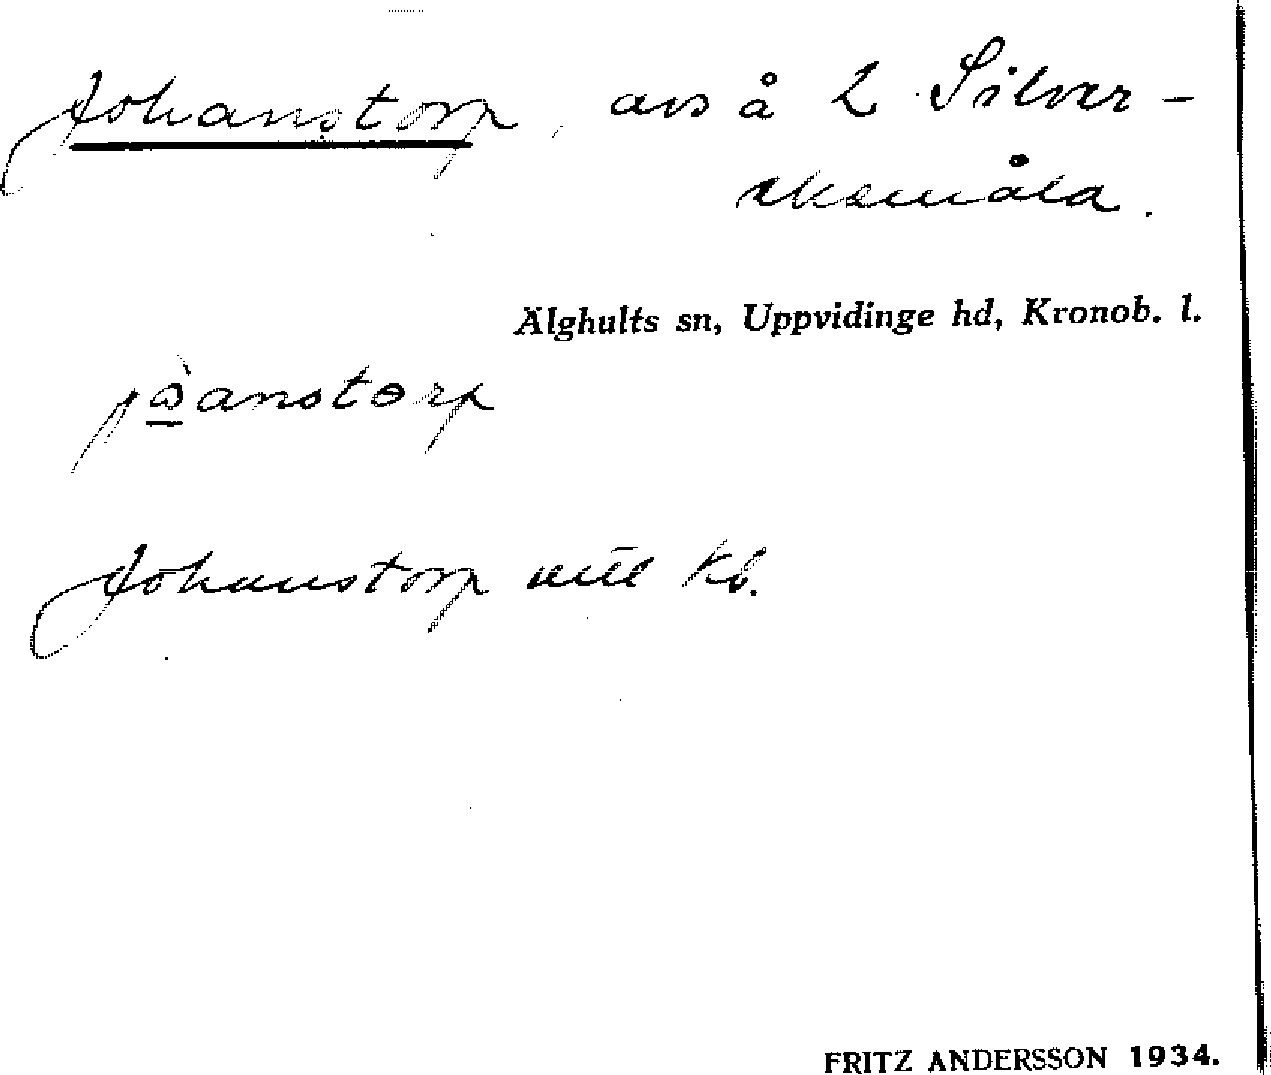 Johanstorp, avs å 2 Silver-
eksmåla.
Älghults sn, Uppvidinge hd, Kronob. l.
jòanstorp
Johanstorp utt Kb.
FRITZ ANDERSSON 1934.